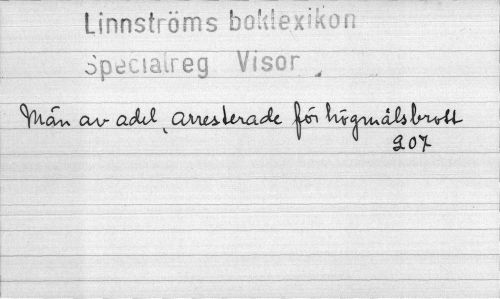 Linnströms boklexikon
Specialreg Visor
Män av adel, arresterade för högmålsbrott
207